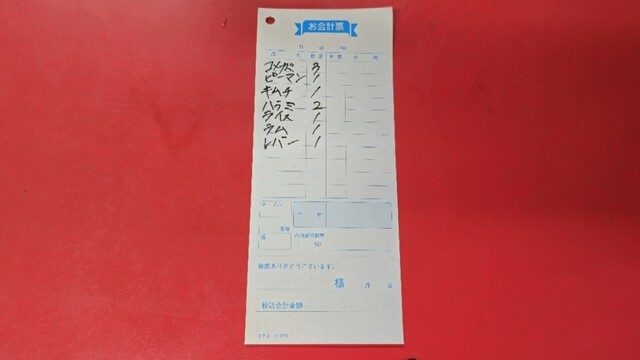 お会計票
月 日 No.
品 名 数量 単価 金 額
コメカミ 3
ピーマン 1
キムチ 1
ハラミ 2
ライス 1
ラム 1
レバー 1
テーブル
合 計
客様
係
内消費税額等
毎度ありがとうございます。
様 月 日
税込合計金額